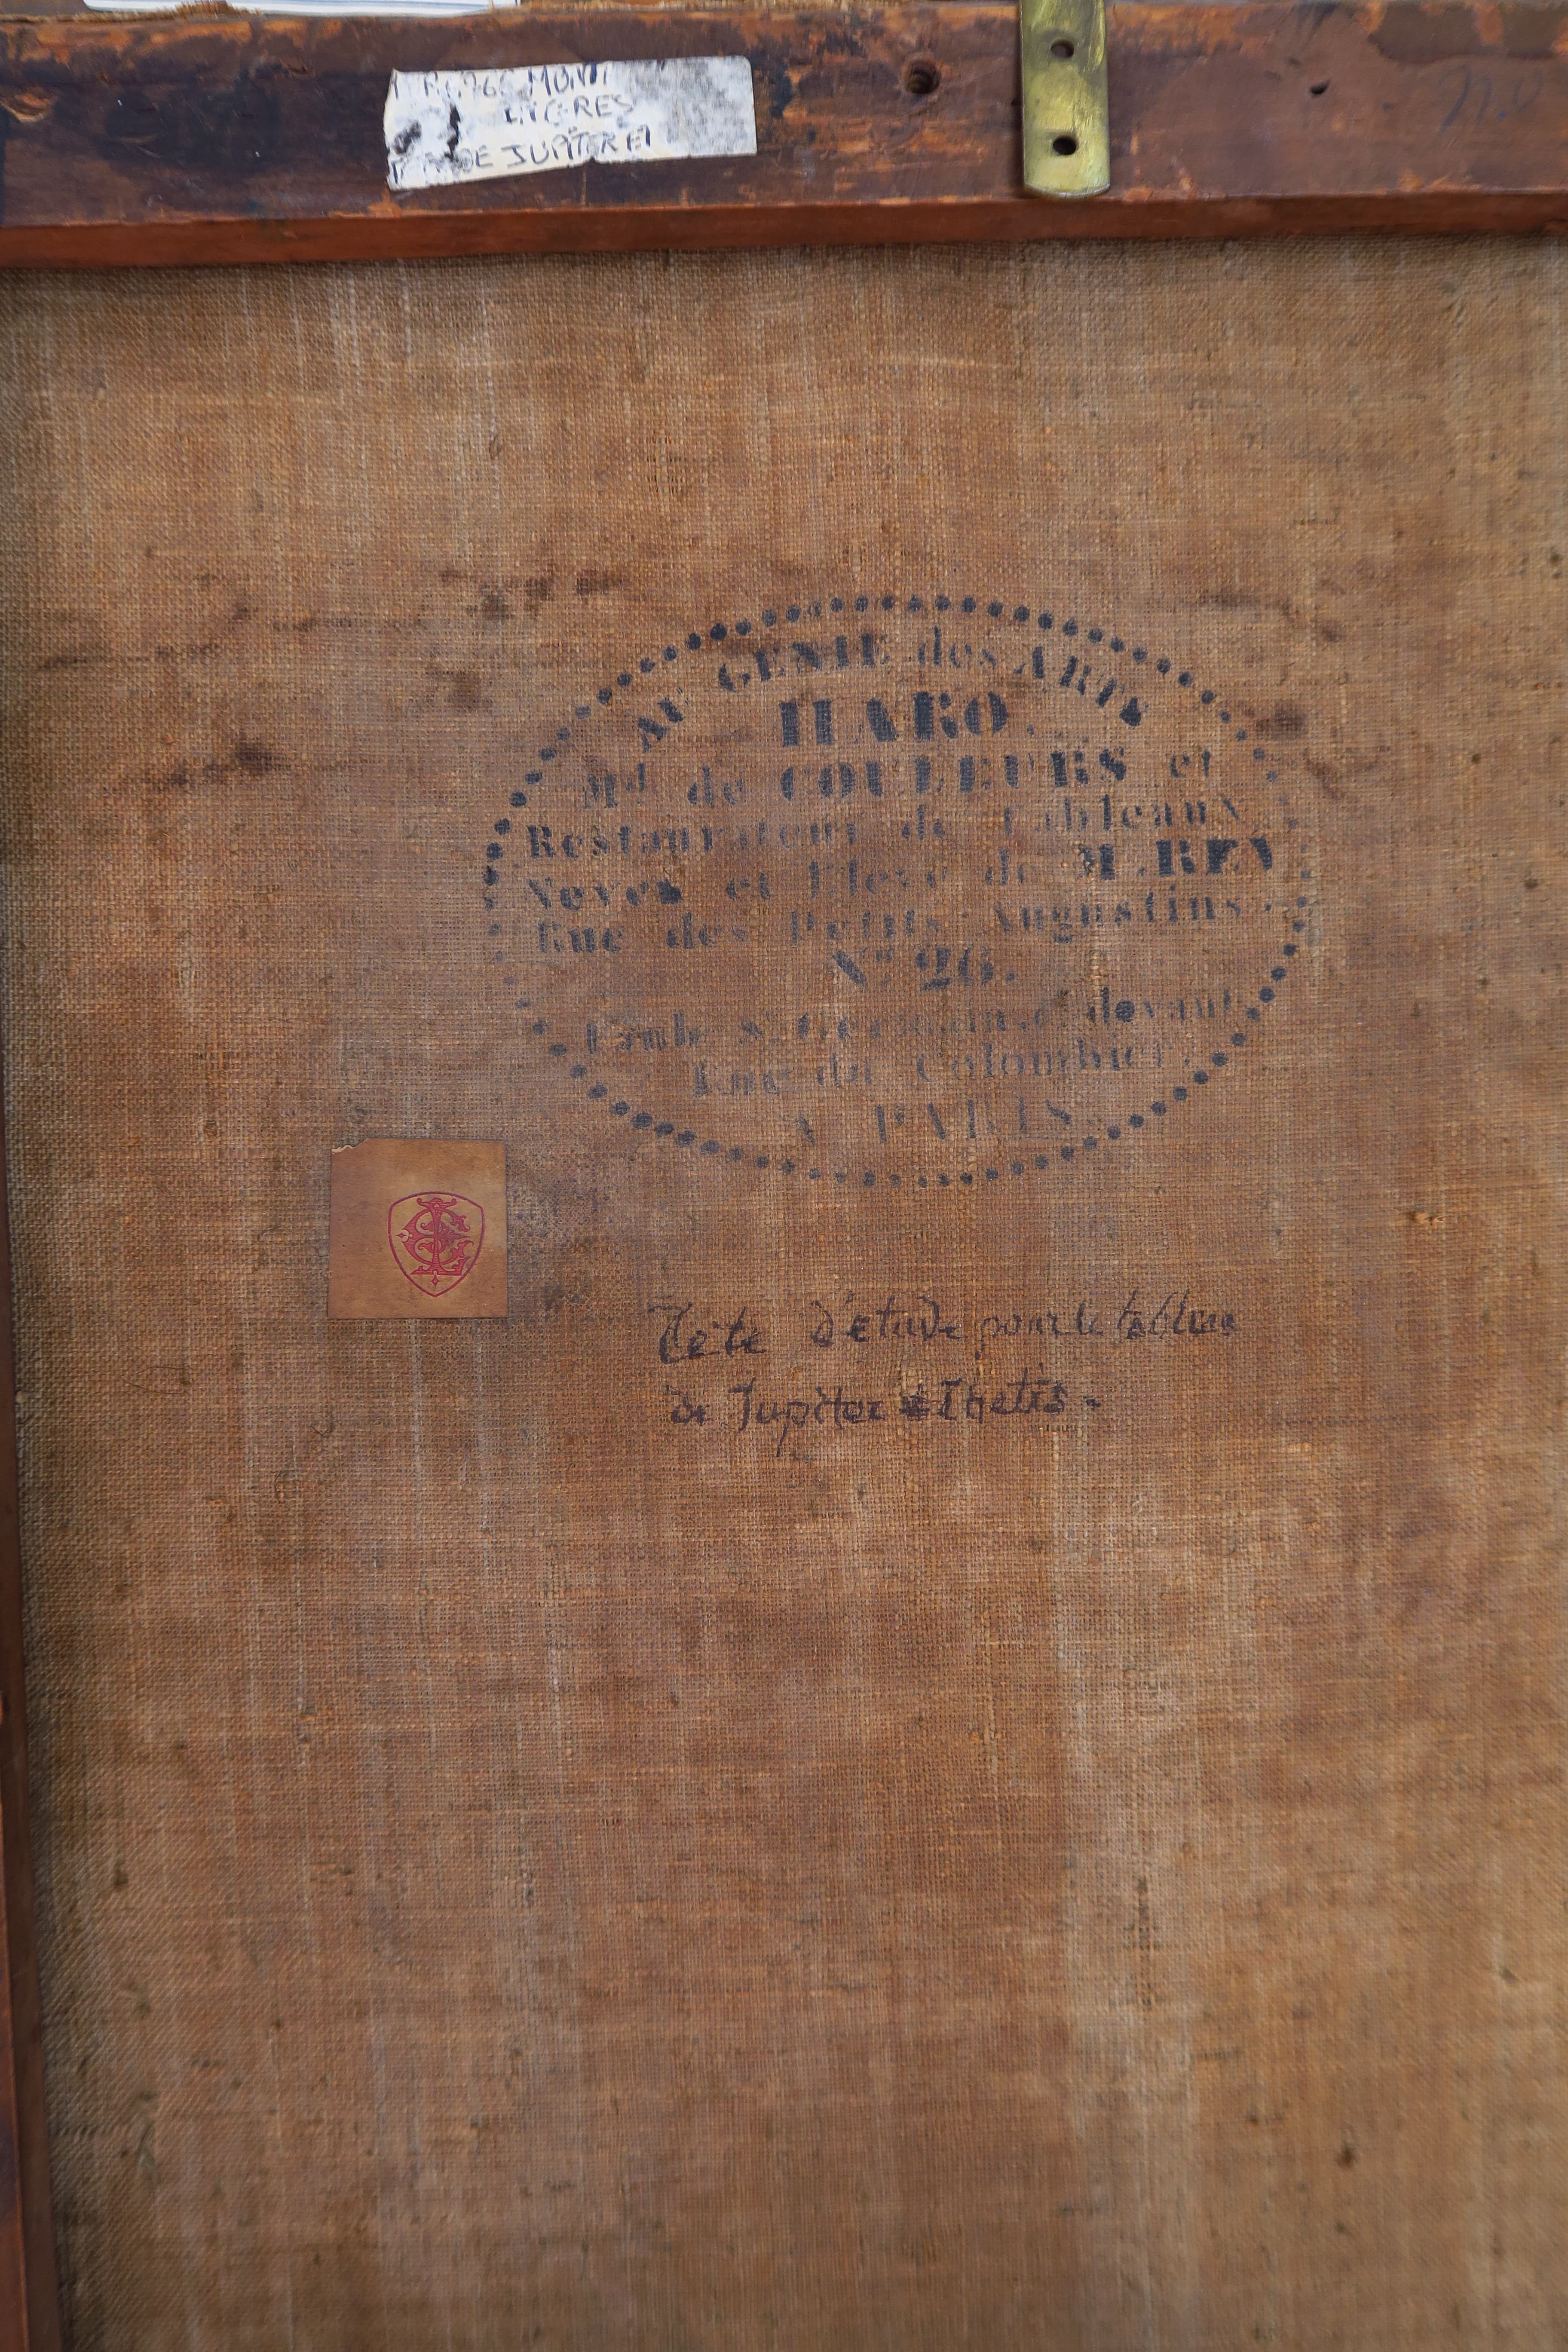 MONT
INGRES
DE JUPITER ET
AU GENIE des ARTS
HARO.
Md de COULEURS et
Restaurateur de tableaux
Neveu et Eleve de M.REY
Rue des Petits Augustins
No 26.
Faub. St Germain devant
Rue du Colombier
A PARIS.
Tête d'étude pour le tableau
de Jupiter et Thetis-